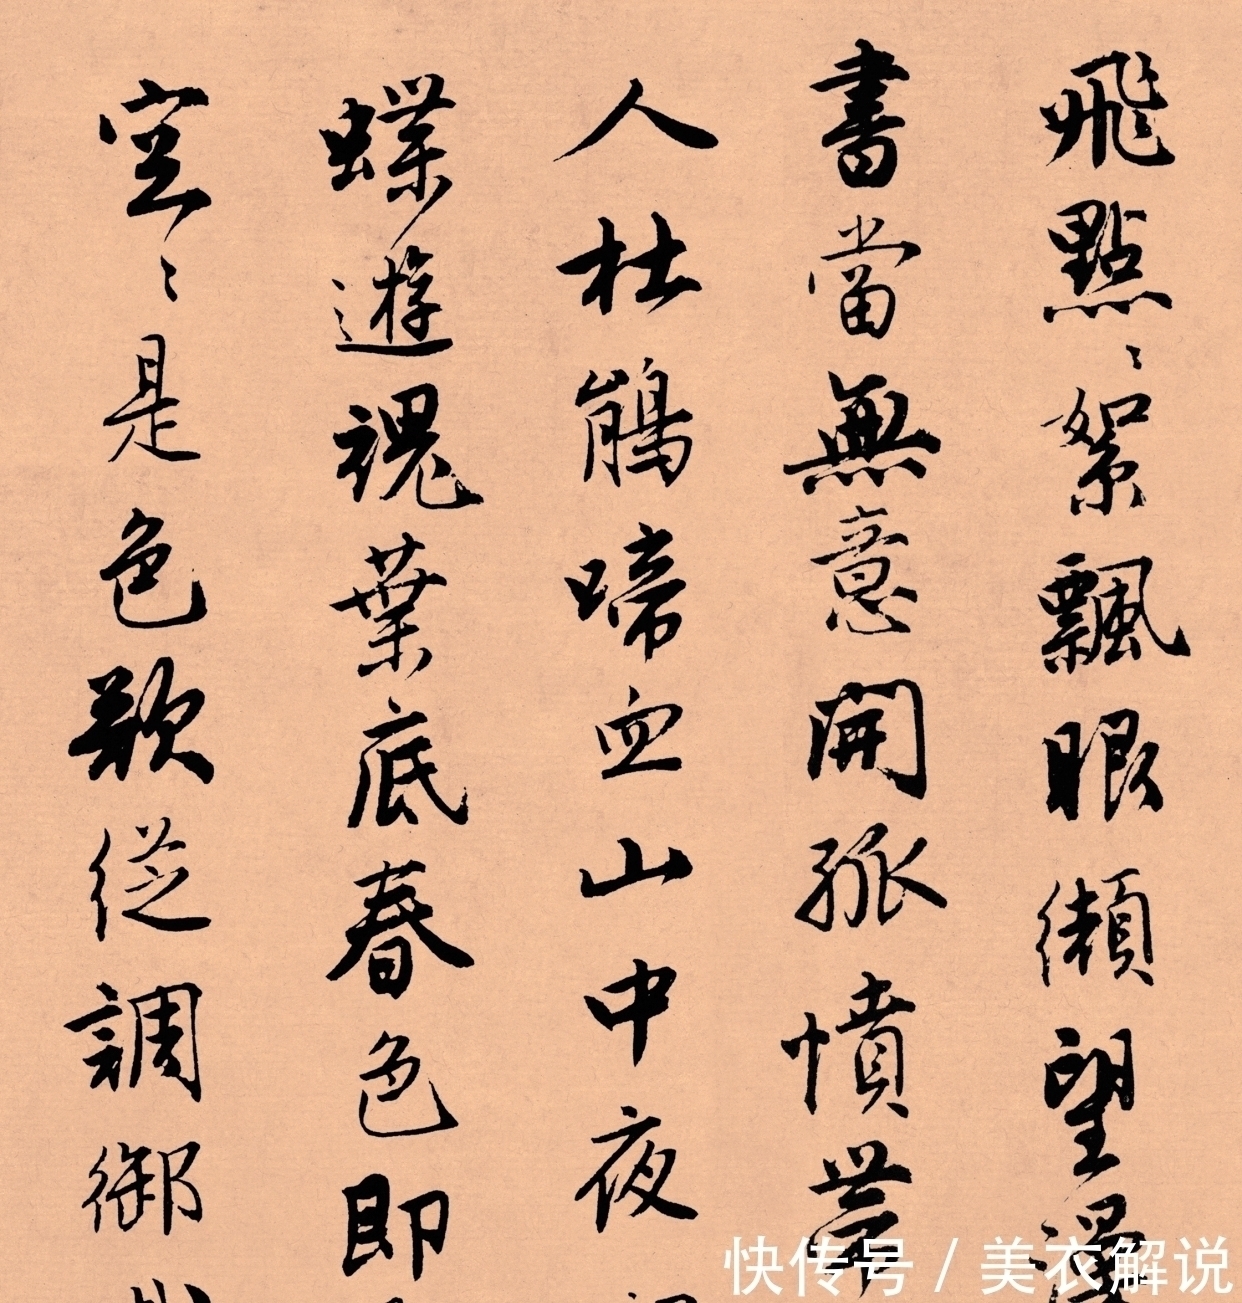 飛點々絮飄眼纈望
書當無意開孤憤帶
人杜鵑啼血山中夜
蝶遊魂葉底春色即
空々是色從調御
快传号 / 美衣解说